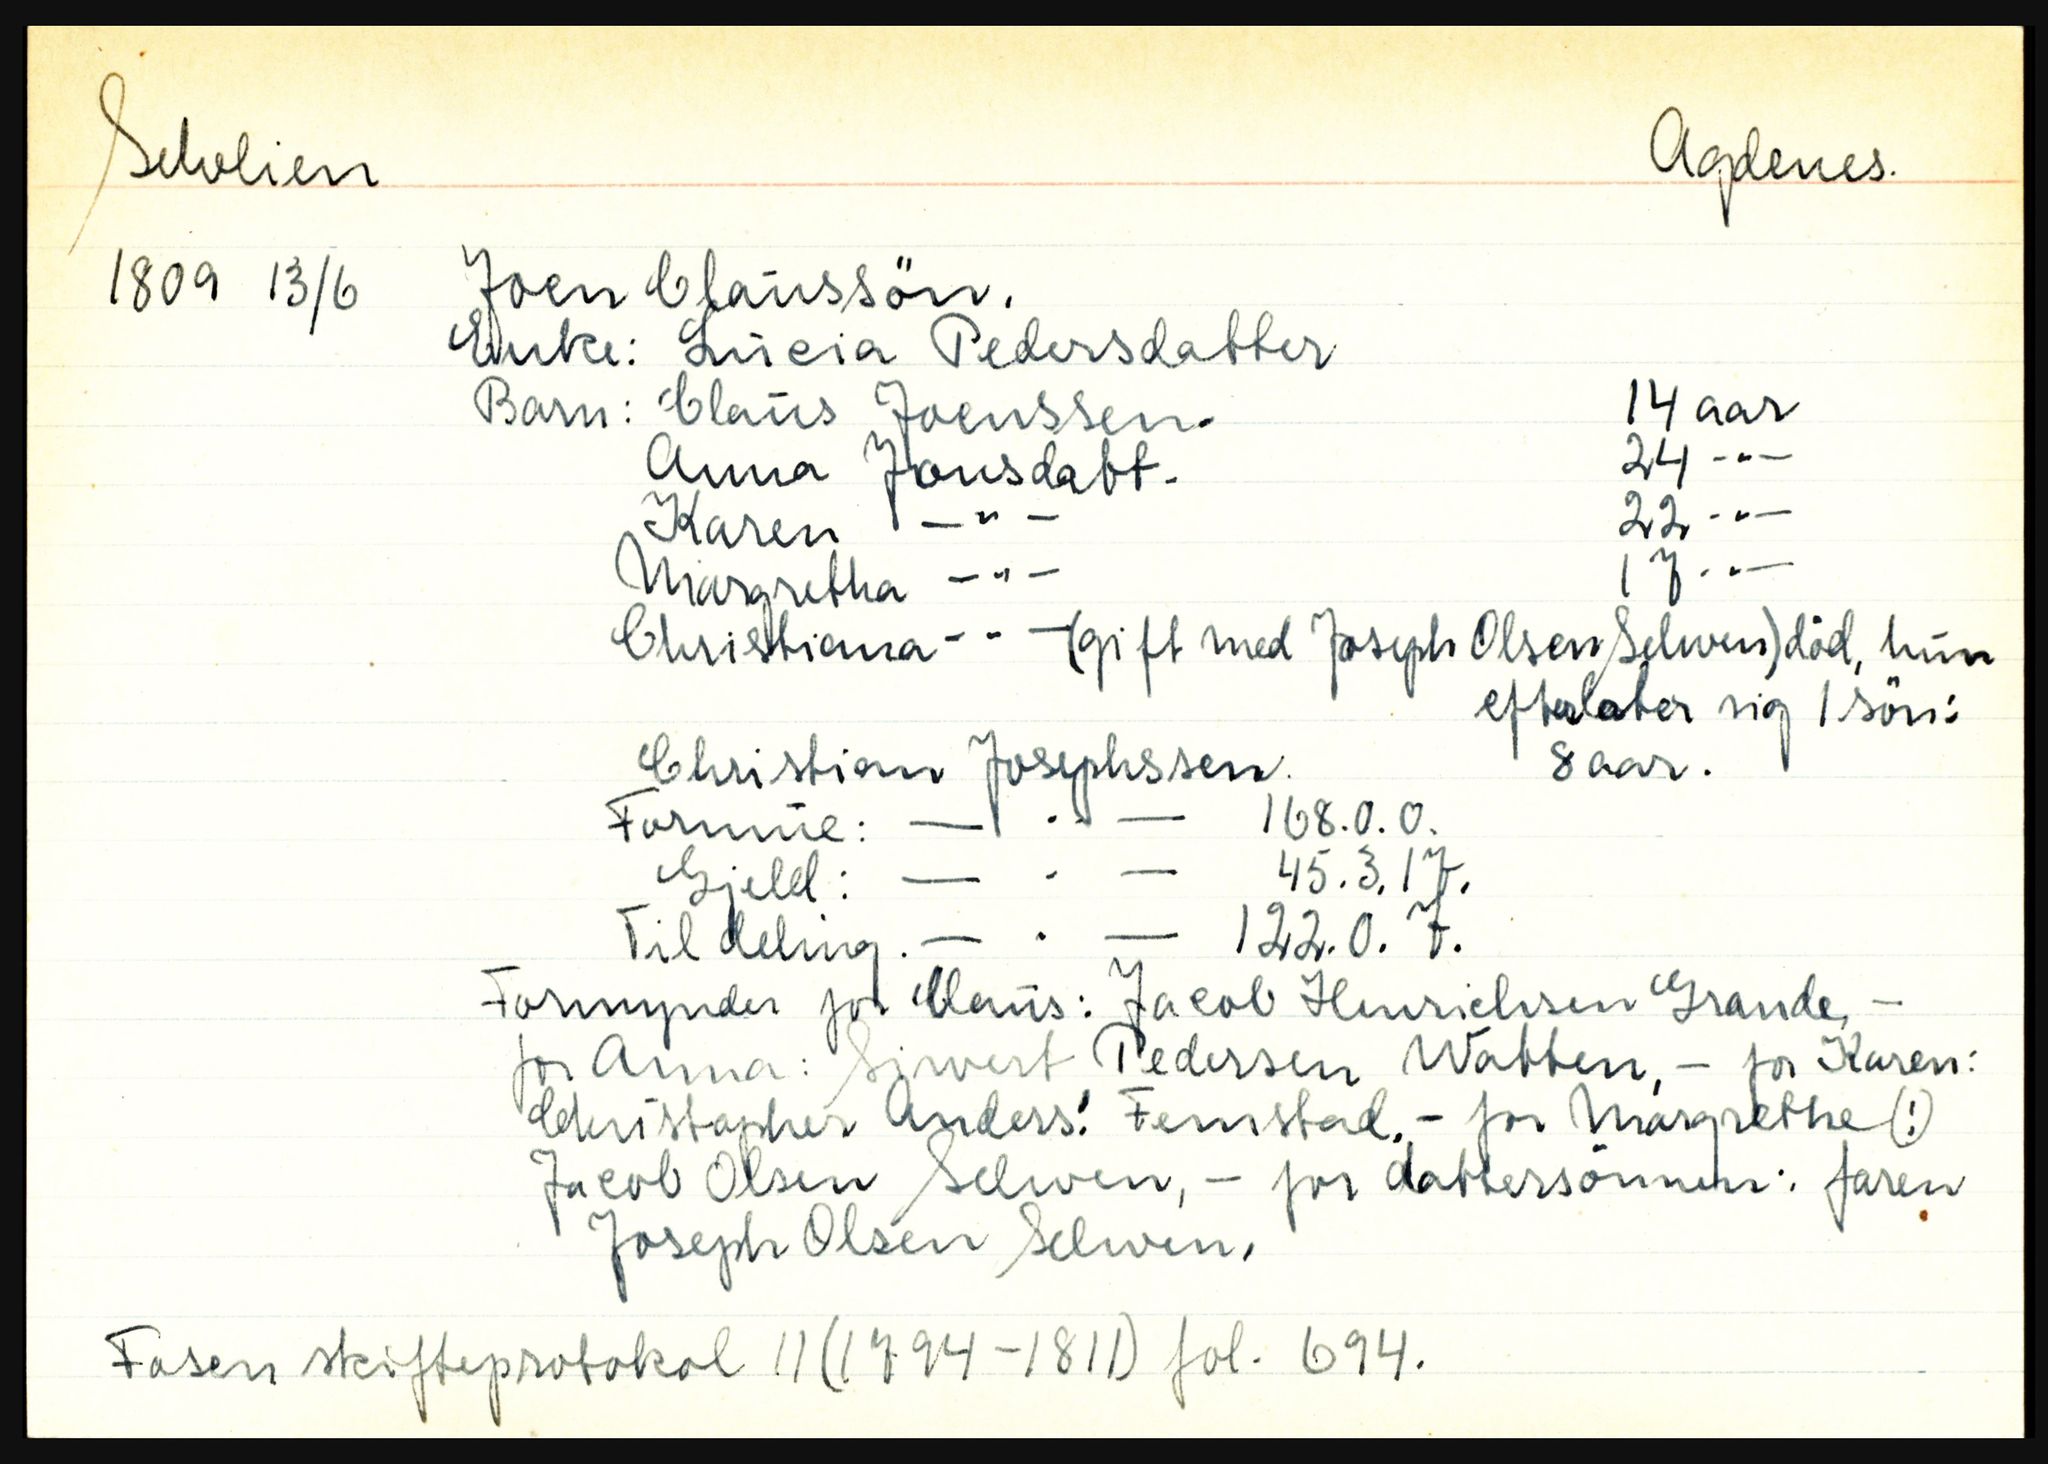 Selvlien Agdenes.
1809 13/6 Joen Claussön.
Enke: Lucia Pedersdatter
Barn: Claus Joenssen. 14 aar
Anna Jonsdatt. 24 -"-
Karen -"- 22 -"-
Margretha -"- 17 -"-
Christiana -"- (gift med Joseph Olsen Selwen) död, hun
efterlater sig 1 sön:
Christian Josephssen. 8 aar.
Formue: — " — 168.0.0.
Gjeld: — " — 45.3.17.
Til deling. — " — 122.0.7.
Formynder for Claus: Jacob Henrichsen Grande, -
for Anna: Sivert Pedersen Watten, - for Karen:
Christopher Anders: Femstad, - for Margrethe (:)
Jacob Olsen Selwen, - for dattersönnen: faren
Joseph Olsen Selwen.
Fosen skifteprotokol 11 (1794-1811) fol. 694.